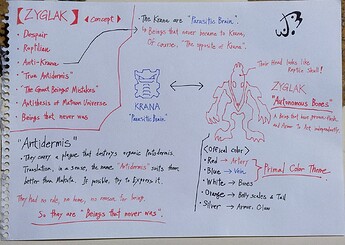 【ZYGLAK】 《concept》
• Despair
• Reptilian
• Anti-Krana
• "True Antidermis"
• "The Great Beings' Mistakes"
• Antithesis of Matoran Universe
• Beings that never was
• The Krana are "Parasitic Brain."
↳ Beings that never became to Krana,
Of course, "The opposite of Krana".
KRANA
"Parasitic Brain"
Their Head looks like
Reptile Skull!
ZYGLAK
"Autonomous Bones"
A Being that have protein-Flesh,
and Armor To Act independently.
"Antidermis"
• They carry a plague that destroys organic Antidermis.
Translation, in a sense, the name "Antidermis" suits them
better than Makuta. If possible, try to Express it.
They had no role, no home, no reason for being,
So they are "Beings that never was".
<Official color>
• Red → Artery
• Blue → Vein
Primal Color Theme
• White → Bones
• Orange → Belly scales & Tail
• Silver → Armor, Claw